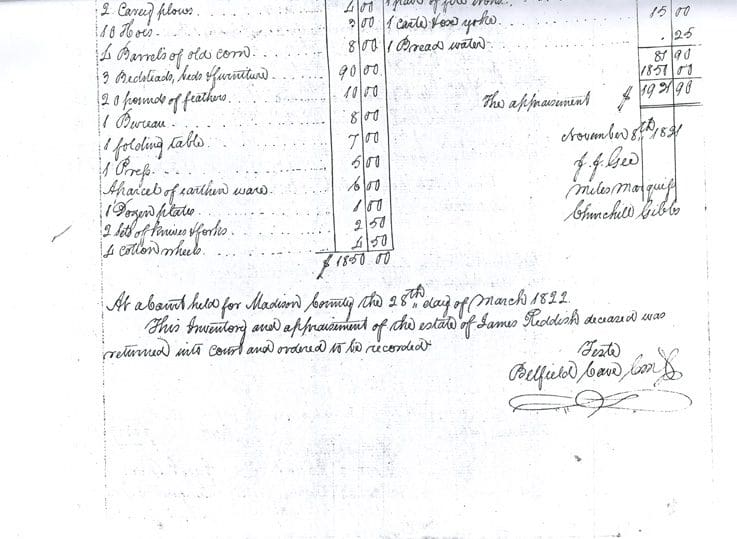 2 Carey plows 4 00
10 Hoes 3 00
4 Barrels of old corn 8 00
3 Bedsteads, beds & furniture 90 00
20 pounds of feathers 10 00
1 Bureau 8 00
1 folding table 7 00
1 Press 5 00
A parcel of earthen ware 6 00
1 Dozen plates 1 00
2 sets of knives & forks 2 50
4 cotton wheels 4 50
$1850.00
1 pair of fire
1 carte & ox yoke 15 00
1 Bread water .25
81 90
00
The appraisement $ 1931 90
November 8th 1821
J. J. Gee
Miles Marquiss
Churchill Gibbs
At a Court held for Madison County the 28th day of March 1822.
This Inventory and appraisement of the estate of James Reddish deceased was
returned into Court and ordered to be recorded
Teste
Belfield Cave